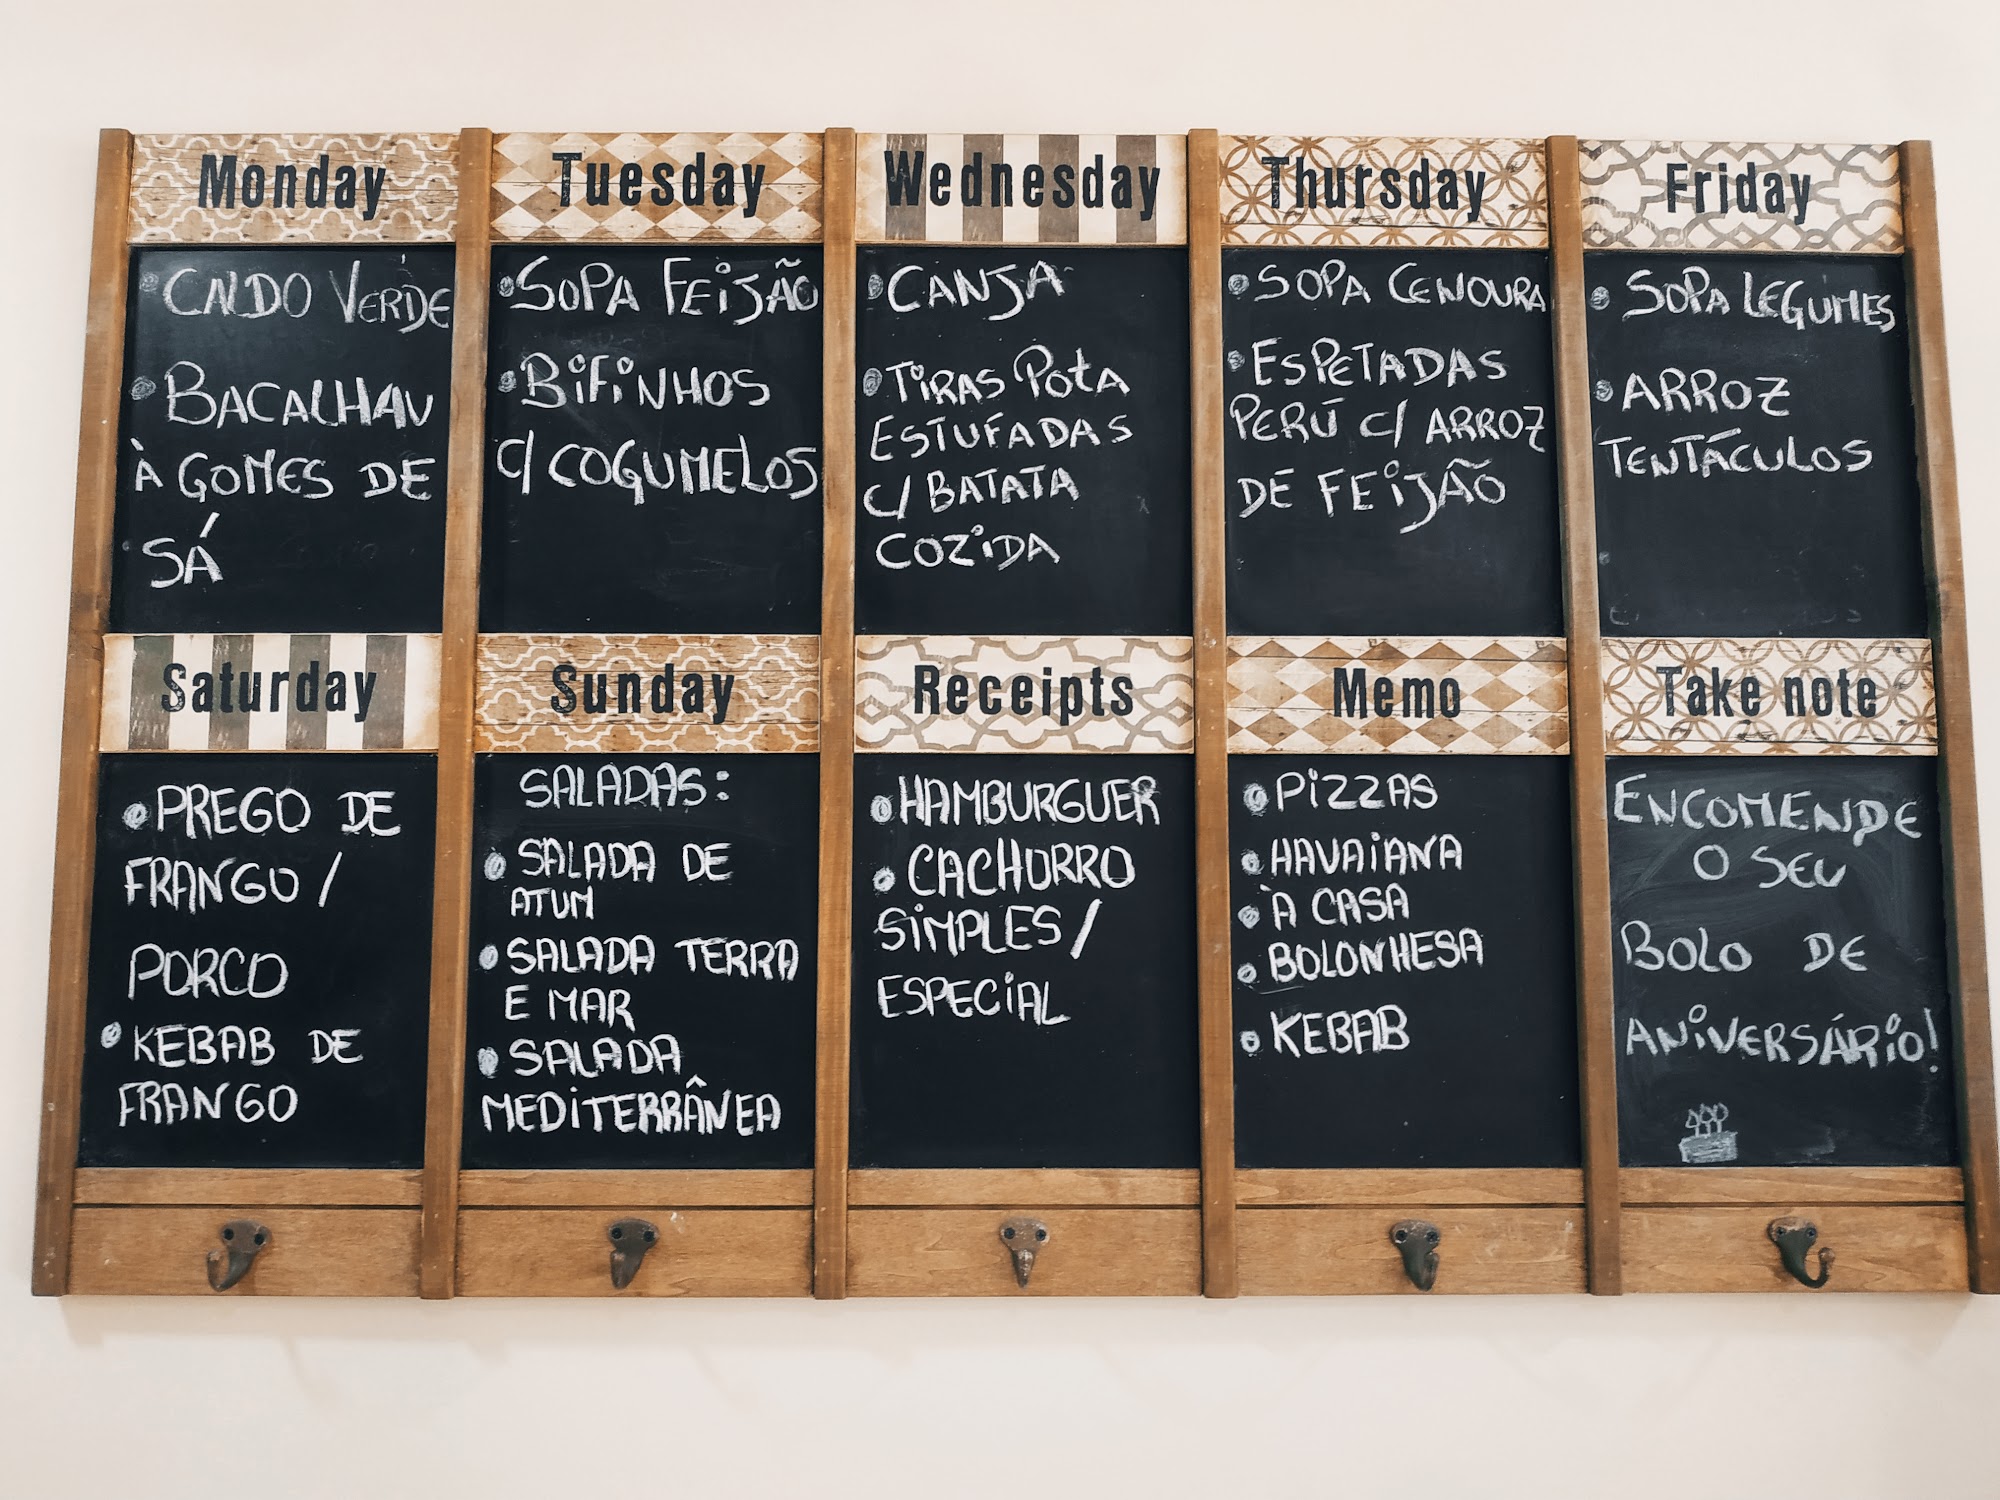 Monday
CALDO VERDE
BACALHAU
À GOMES DE
SÁ
Tuesday
SOPA FEIJÃO
BIFINHOS
C/ COGUMELOS
Wednesday
CANJA
TIRAS POTA
ESTUFADAS
C/ BATATA
COZIDA
Thursday
SOPA CENOURA
ESPETADAS
PERÚ C/ ARROZ
DE FEIJÃO
Friday
SOPA LEGUMES
ARROZ
TENTÁCULOS
Saturday
PREGO DE
FRANGO /
PORCO
KEBAB DE
FRANGO
Sunday
SALADAS:
SALADA DE
ATUM
SALADA TERRA
E MAR
SALADA
MEDITERRÂNEA
Receipts
HAMBURGUER
CACHORRO
SIMPLES /
ESPECIAL
Memo
PIZZAS
HAVAIANA
À CASA
BOLONHESA
KEBAB
Take note
ENCOMENDE
O SEU
BOLO DE
ANIVERSÁRIO!